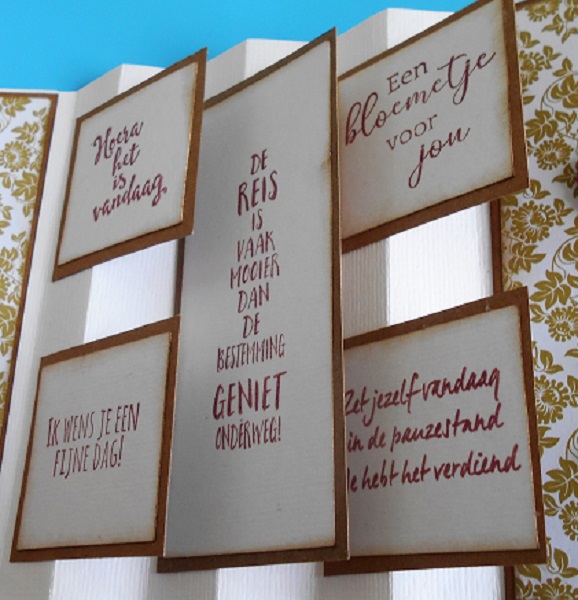 Hoera
het
is
vandaag
IK WENS JE EEN
FIJNE DAG!
DE
REIS
IS
VAAK
MOOIER
DAN
DE
BESTEMMING
GENIET
ONDERWEG!
Een
bloemetje
voor
jou
Zet jezelf vandaag
in de pauzestand
Je hebt het verdiend